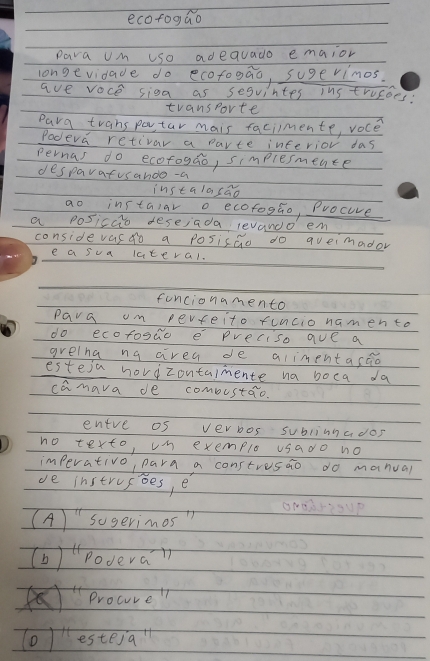 ecofogão
para um uso adequado e maior
longevidade do ecofogão, sugerimos.
que você siga as seguintes instruções:
transporte
Para transportar mais facilmente, você
Poderá retirar a parte inferior das
Pernas do ecofogão, simplesmente
desparafusando-a
instalasão
ao instalar o ecofogão, Procure
a posicão desejada levando em
considerasão a posisão do queimador
e a sua lateral.
funcionamento
Para um perfeito funcionamento
do ecofogão é preciso que a
grelha na área de alimentasão
esteja horizontalmente na boca da
câmara de combustão.
entre os verbos sublinhados
no texto, um exemplo usado no
imperativo, para a construsão do manual
de instrusões, é
(A) "sugerimos"
(b) "Poderá"
(c) "Procure"
(D) "esteja"